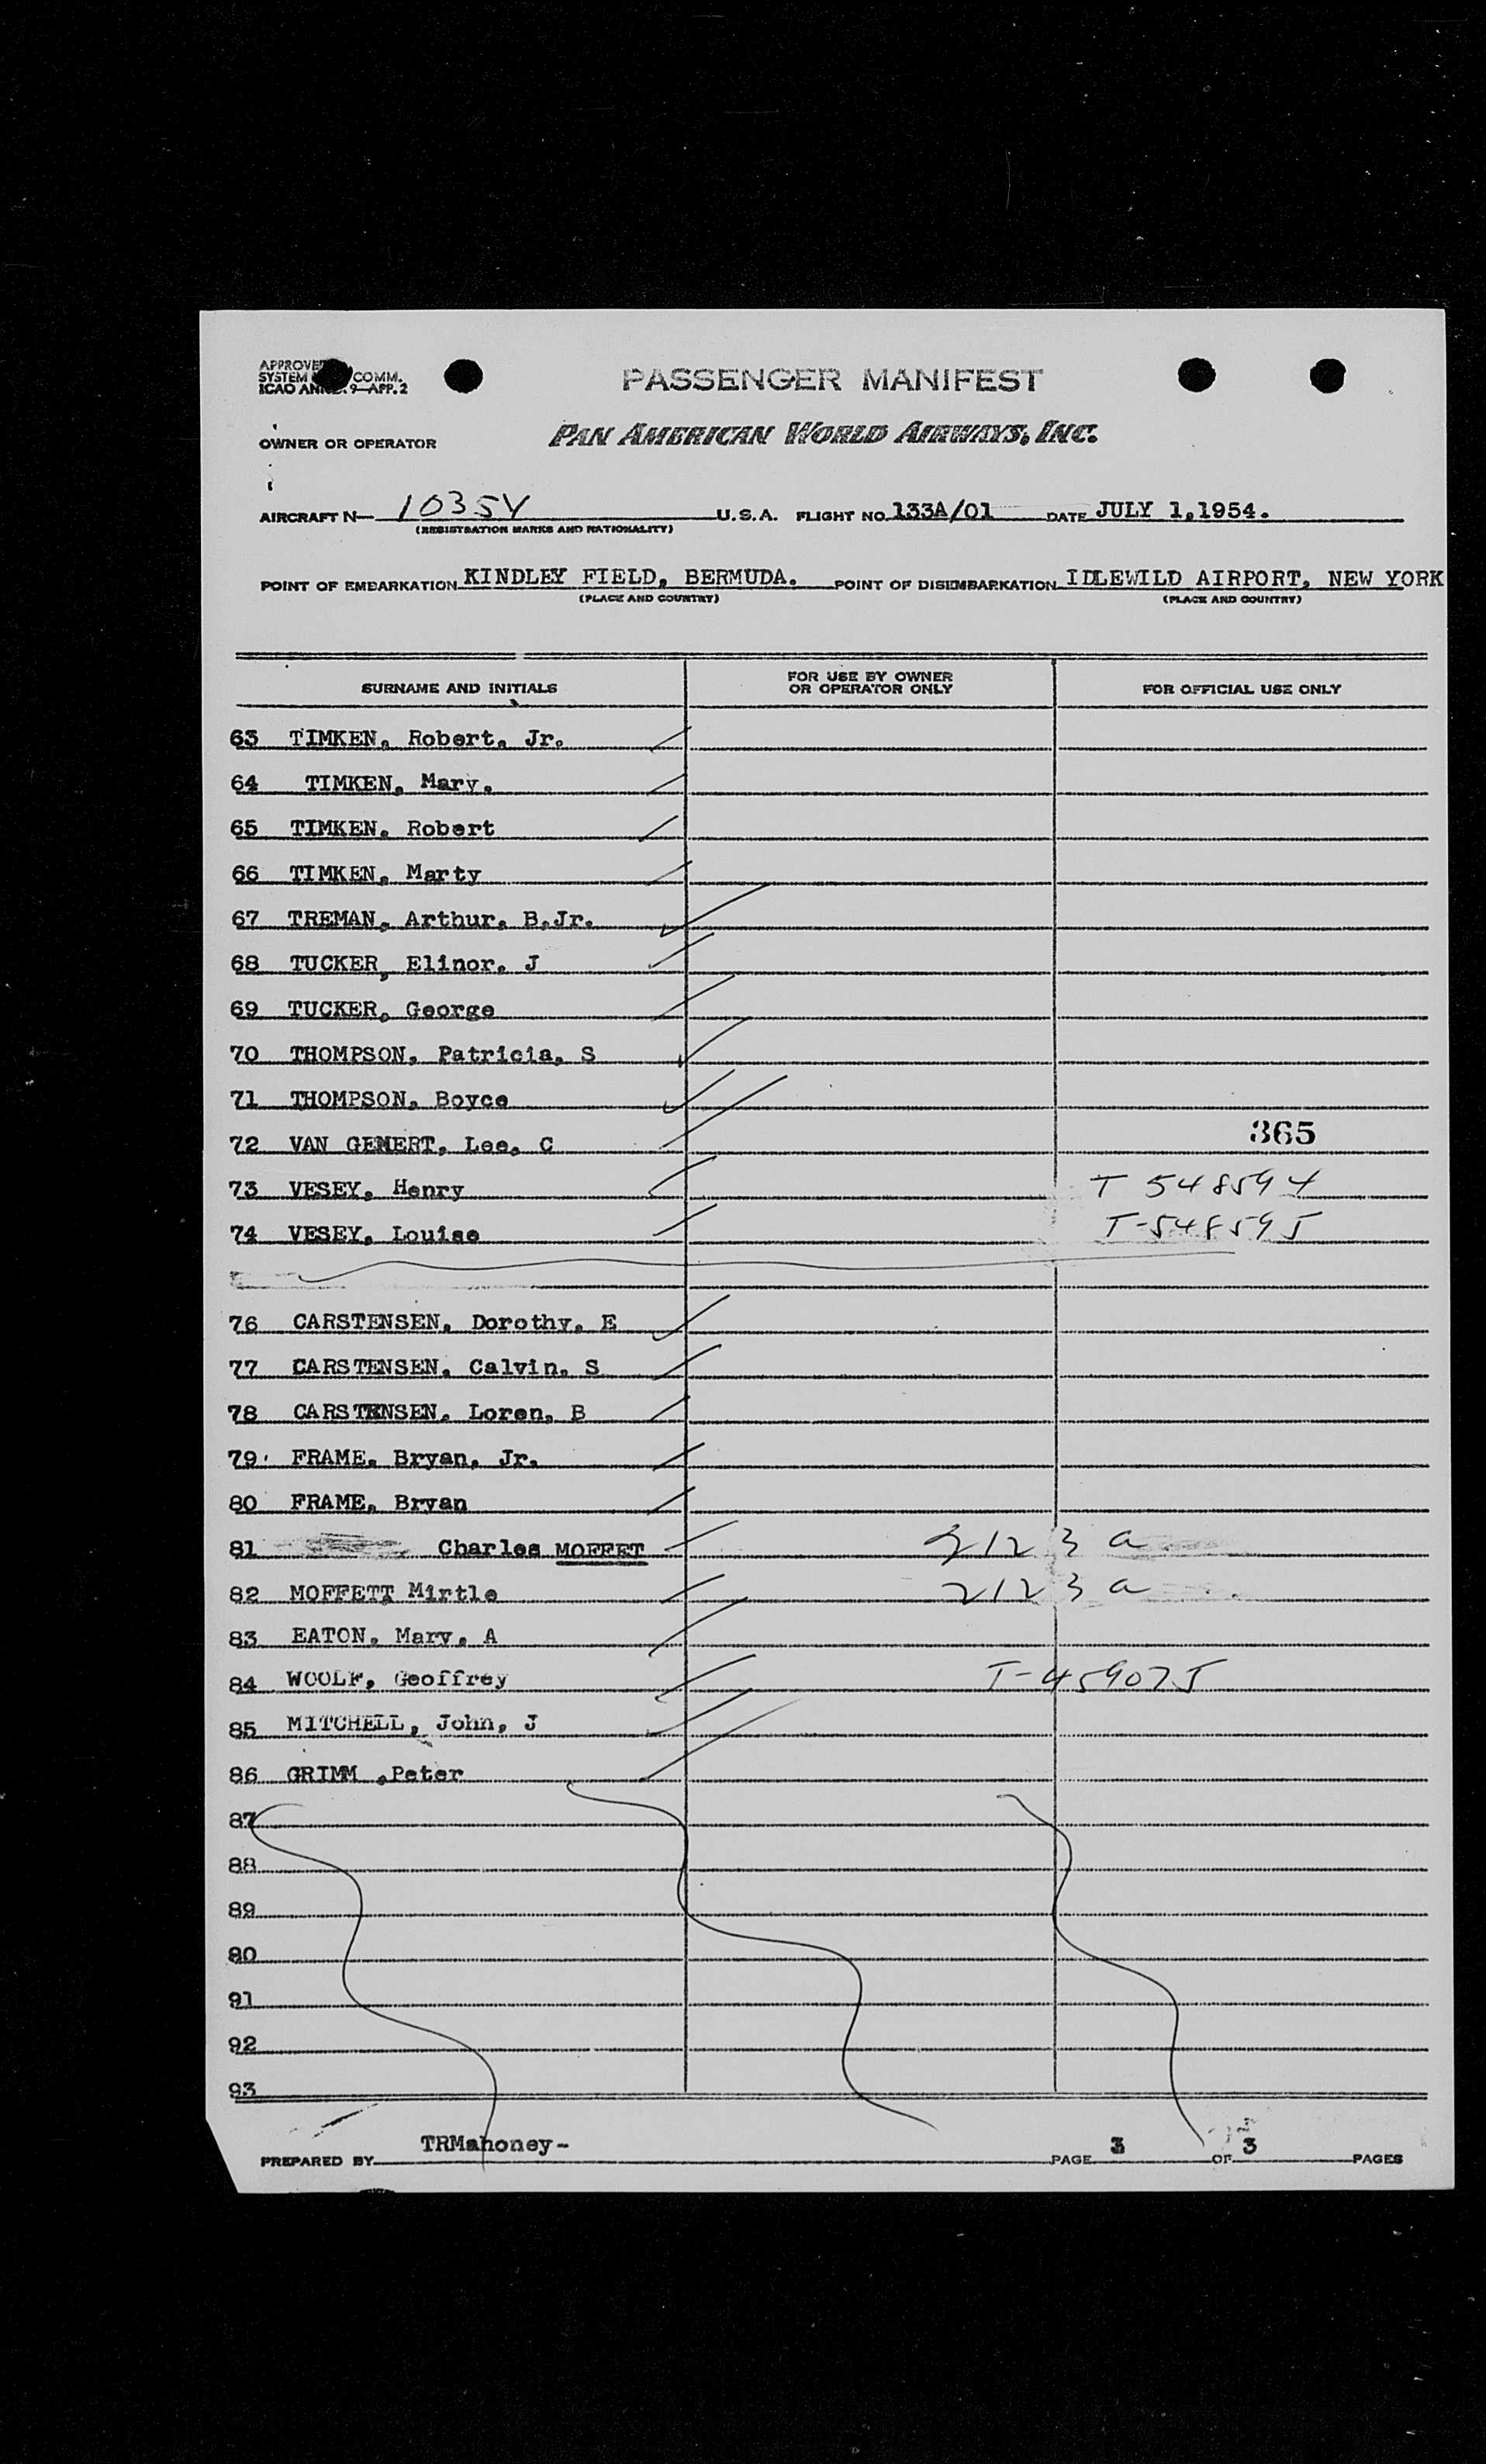 APPROVE
SYSTEM COMM.
ICAO AN 9—APP. 2
PASSENGER MANIFEST
OWNER OR OPERATOR PAN AMERICAN WORLD AIRWAYS, INC.
AIRCRAFT N— 1035V U.S.A. FLIGHT NO. 133A/01 DATE JULY 1,1954.
(REGISTRATION MARKS AND NATIONALITY)
POINT OF EMBARKATION KINDLEY FIELD, BERMUDA. POINT OF DISEMBARKATION IDLEWILD AIRPORT, NEW YORK
(PLACE AND COUNTRY) (PLACE AND COUNTRY)
SURNAME AND INITIALS FOR USE BY OWNER OR OPERATOR ONLY FOR OFFICIAL USE ONLY
63 TIMKEN, Robert, Jr.
64 TIMKEN, Mary.
65 TIMKEN, Robert
66 TIMKEN, Marty
67 TREMAN, Arthur, B,Jr.
68 TUCKER, Elinor, J
69 TUCKER, George
70 THOMPSON, Patricia, S
71 THOMPSON, Boyce
365
72 VAN GEMERT, Lee, C
73 VESEY, Henry T 548594
74 VESEY, Louise T-548595
76 CARSTENSEN, Dorothy, E
77 CARSTENSEN, Calvin, S
78 CARSTENSEN, Loren, B
79 FRAME, Bryan, Jr.
80 FRAME, Bryan
81 Charles MOFFET 2123 a
82 MOFFETT Mirtle 2123 a
83 EATON, Mary, A
84 WOOLF, Geoffrey T-459075
85 MITCHELL, John, J
86 GRIMM ,Peter
87
88
89
80
91
92
93
PREPARED BY TRMahoney- PAGE 3 OF 3 PAGES